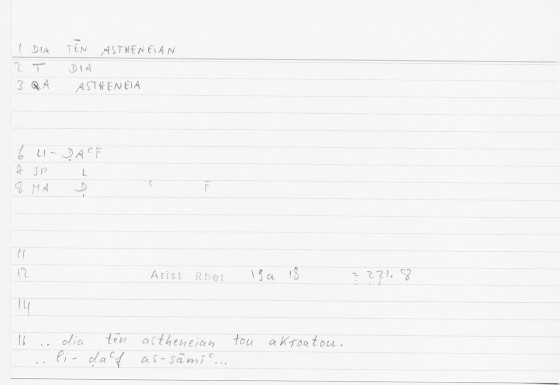 1 DIA TĒN ASTHENEIAN
2 T DIA
3 QA ASTHENEIA
6 LI-ḌAᶜF
7 SP L
8 MA Ḍ ᶜ F
11
12 Arist Rhet 19a 18 = 231.8
14
16 .. dia tēn astheneian tou akroatou.
.. li-ḍaᶜf as-sāmiᶜ...